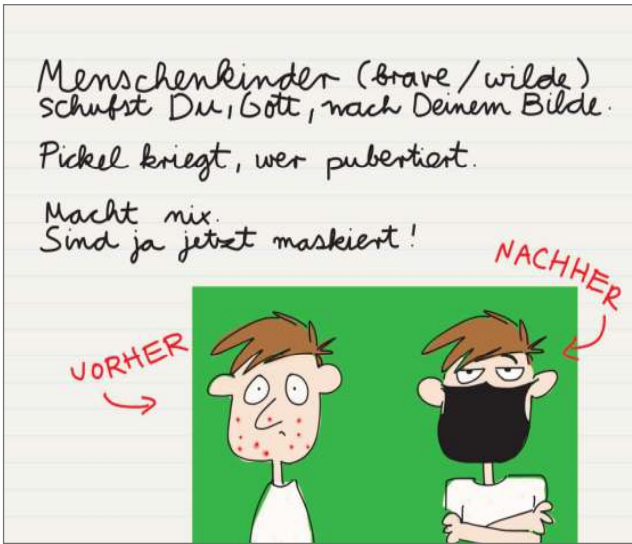 Menschenkinder (brave/wilde)
schufst Du, Gott, nach Deinem Bilde.
Pickel kriegt, wer pubertiert.
Macht nix.
Sind ja jetzt maskiert!
NACHHER
VORHER